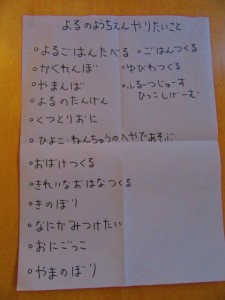 よるのようちえんやりたいこと
○よるごはんたべる ○ごはんつくる
○かくれんぼ ○ゆびわつくる
○やまんば ○ふるーつじゅーす
○よるのたんけん ひっこしげーむ
○くつとりおに
○ひよこ・ねんちゅうのへやであそぶ
○おばけつくる
○きれいなおはなつくる
○きのぼり
○なにかみつけたい
○おにごっこ
○やまのぼり